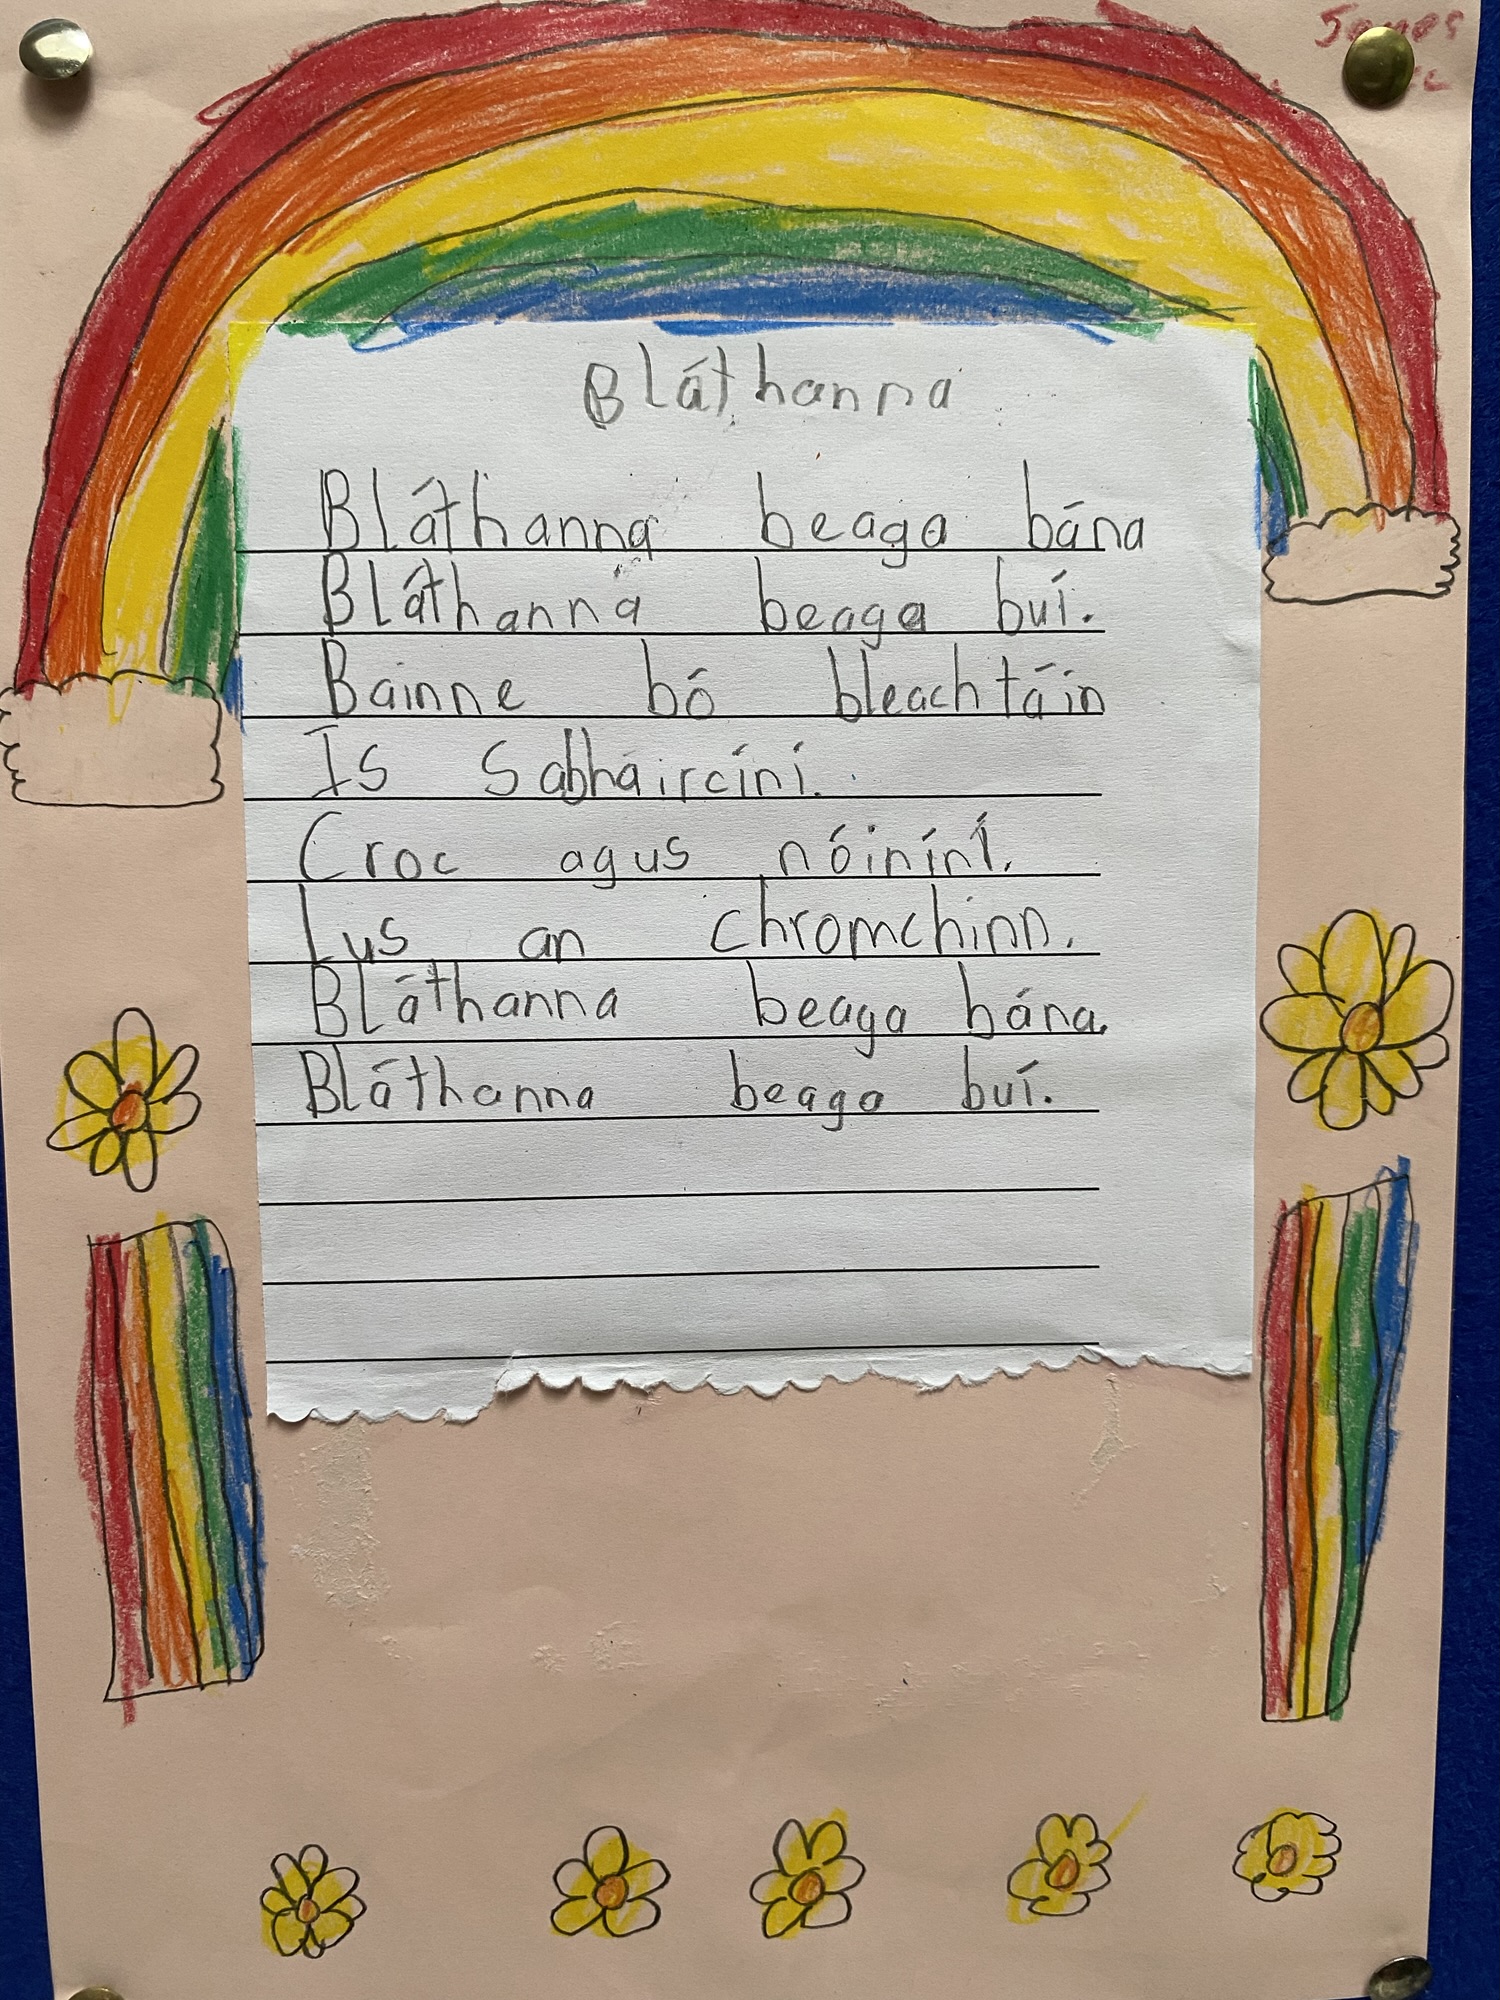 Bláthanna
Bláthanna beaga bána
Bláthanna beaga buí.
Bainne bó bleachtáin
Is Sabhaircíní.
Croc agus nóiníní.
Lus an chromchinn.
Bláthanna beaga bána.
Bláthanna beaga buí.